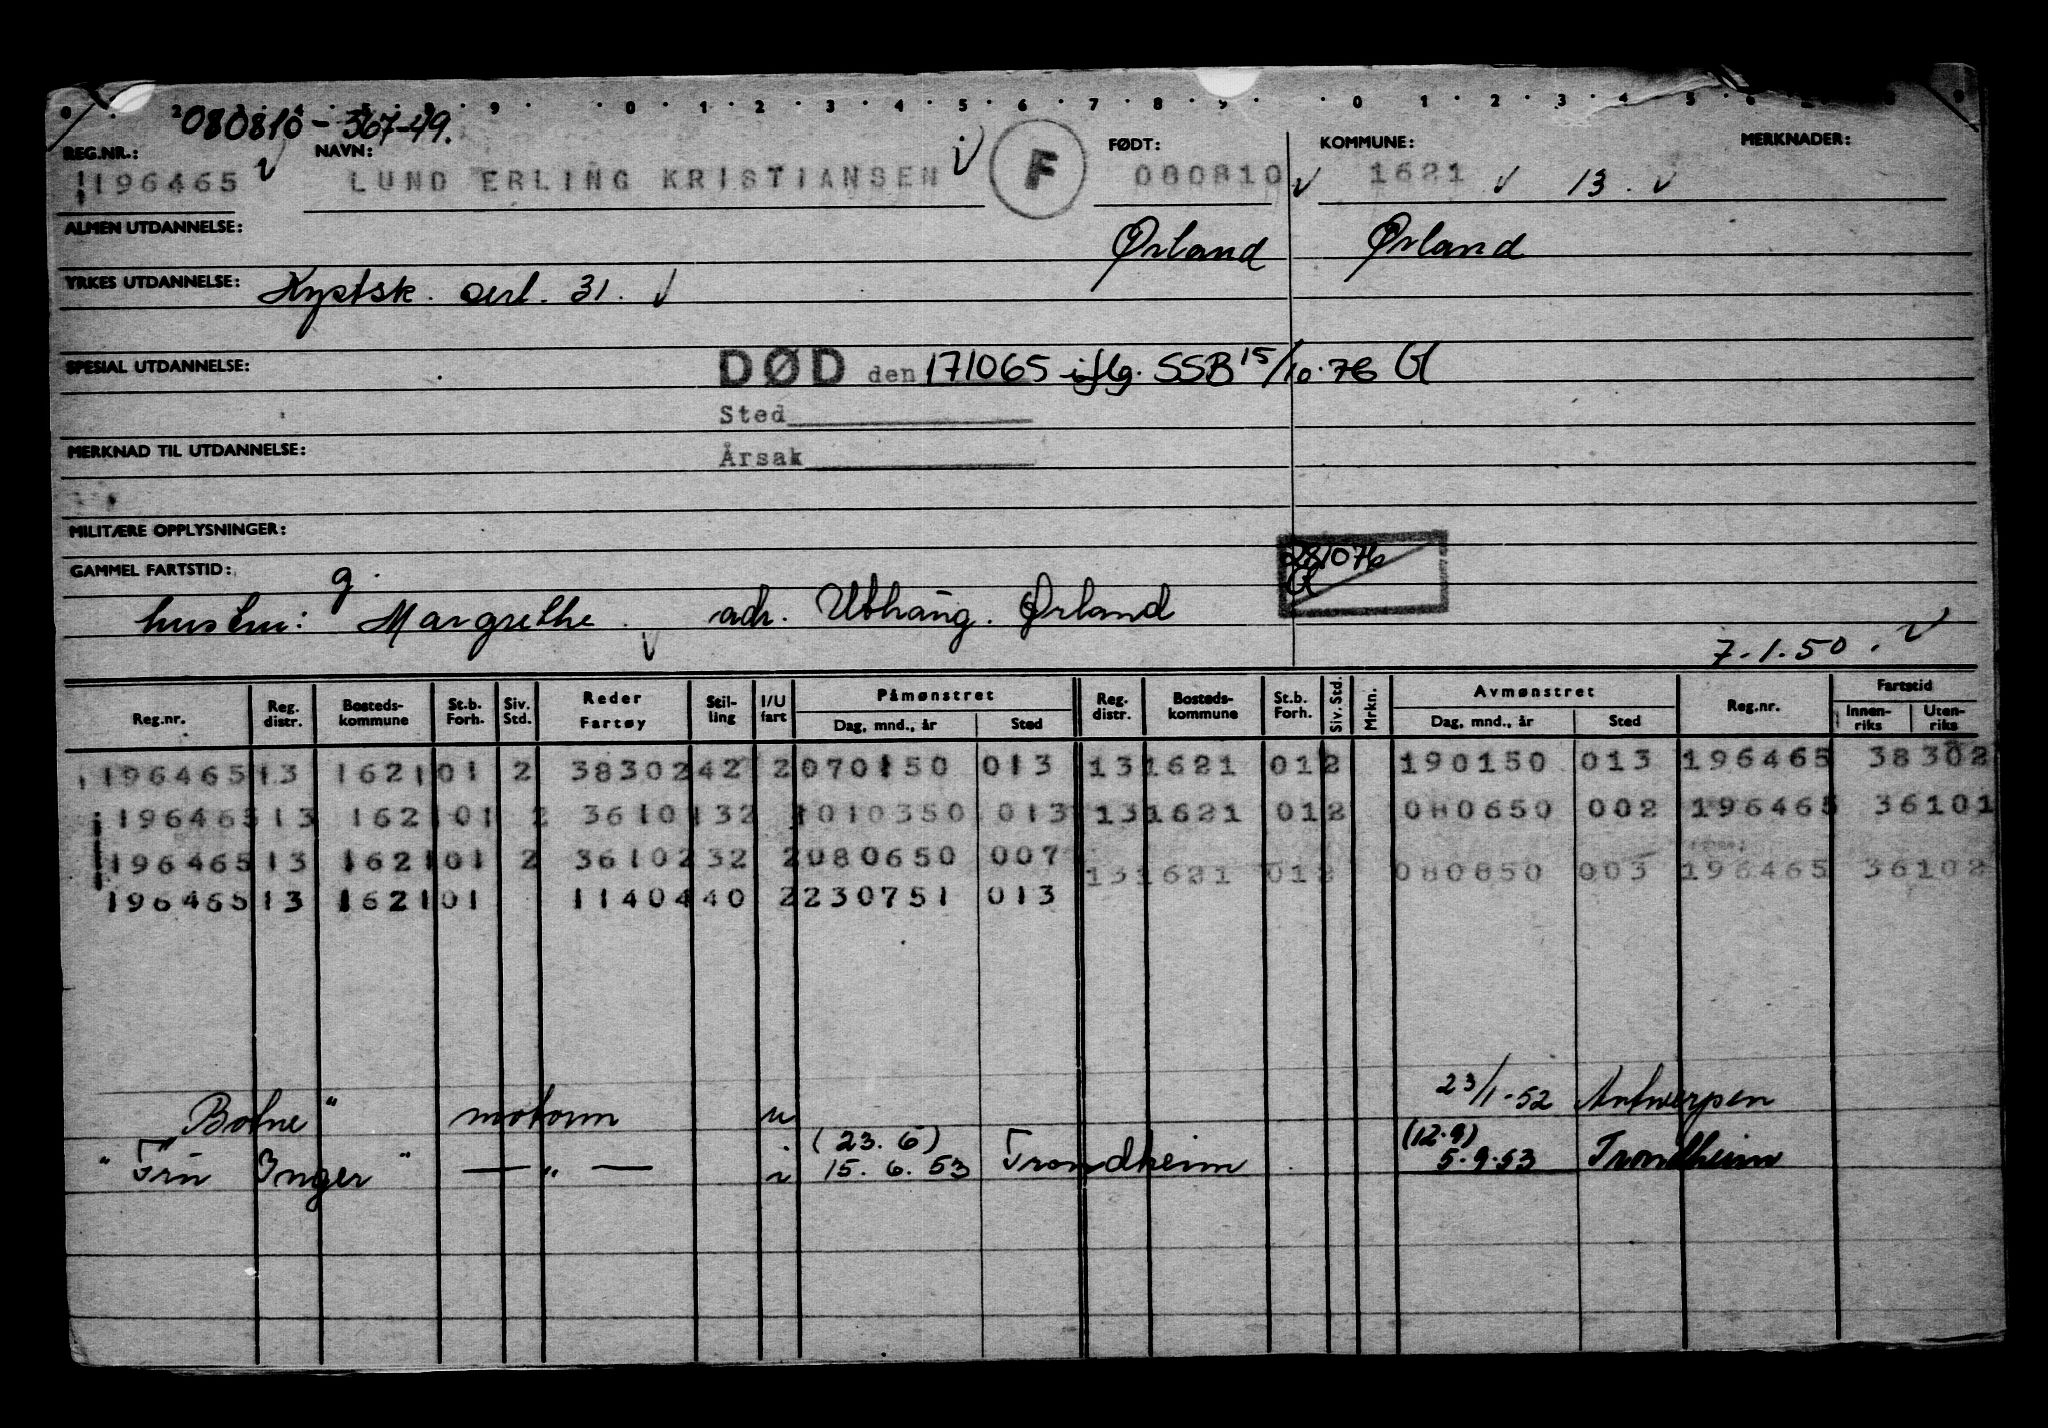 080810-36749.
REG.NR.: NAVN: FØDT: KOMMUNE: MERKNADER:
196465 LUND ERLING KRISTIANSEN F 080810 1621 13.
ALMEN UTDANNELSE: Ørland Ørland
YRKES UTDANNELSE: Kystsk. sert. 31.
SPESIAL UTDANNELSE: DØD den 171065 iflg. SSB 15/10.76
Sted
MERKNAD TIL UTDANNELSE: Årsak
MILITÆRE OPPLYSNINGER:
281076
GAMMEL FARTSTID: g.
hustru: Margrethe. adr. Uthaug. Ørland
7.1.50.
Reg.nr. Reg. distr. Bosteds-kommune St.b. Forh. Siv. Std. Reder Fartøy Stil-ling I/U fart Påmønstret Dag, mnd., år Sted Reg. distr. Bosteds-kommune St.b. Forh. Siv. Std. Mrkn. Avmønstret Dag, mnd., år Sted Reg.nr. Fartstid Innen-riks Uten-riks
196465 13 1621 01 2 38302 42 2 070150 013 13 1621 01 2 190150 013 196465 38302
196465 13 1621 01 2 36101 32 1 010350 013 13 1621 01 2 080650 002 196465 36101
196465 13 1621 01 2 36102 32 2 080650 007 13 1621 01 2 080850 003 196465 36102
196465 13 1621 01 11404 40 2 230751 013
"Botne" motorm u 23/1-52 Antwerpen
(23.6) (12.9)
"Frü Inger" —"— i 15.6.53 Trondheim 5.9.53 Trondheim